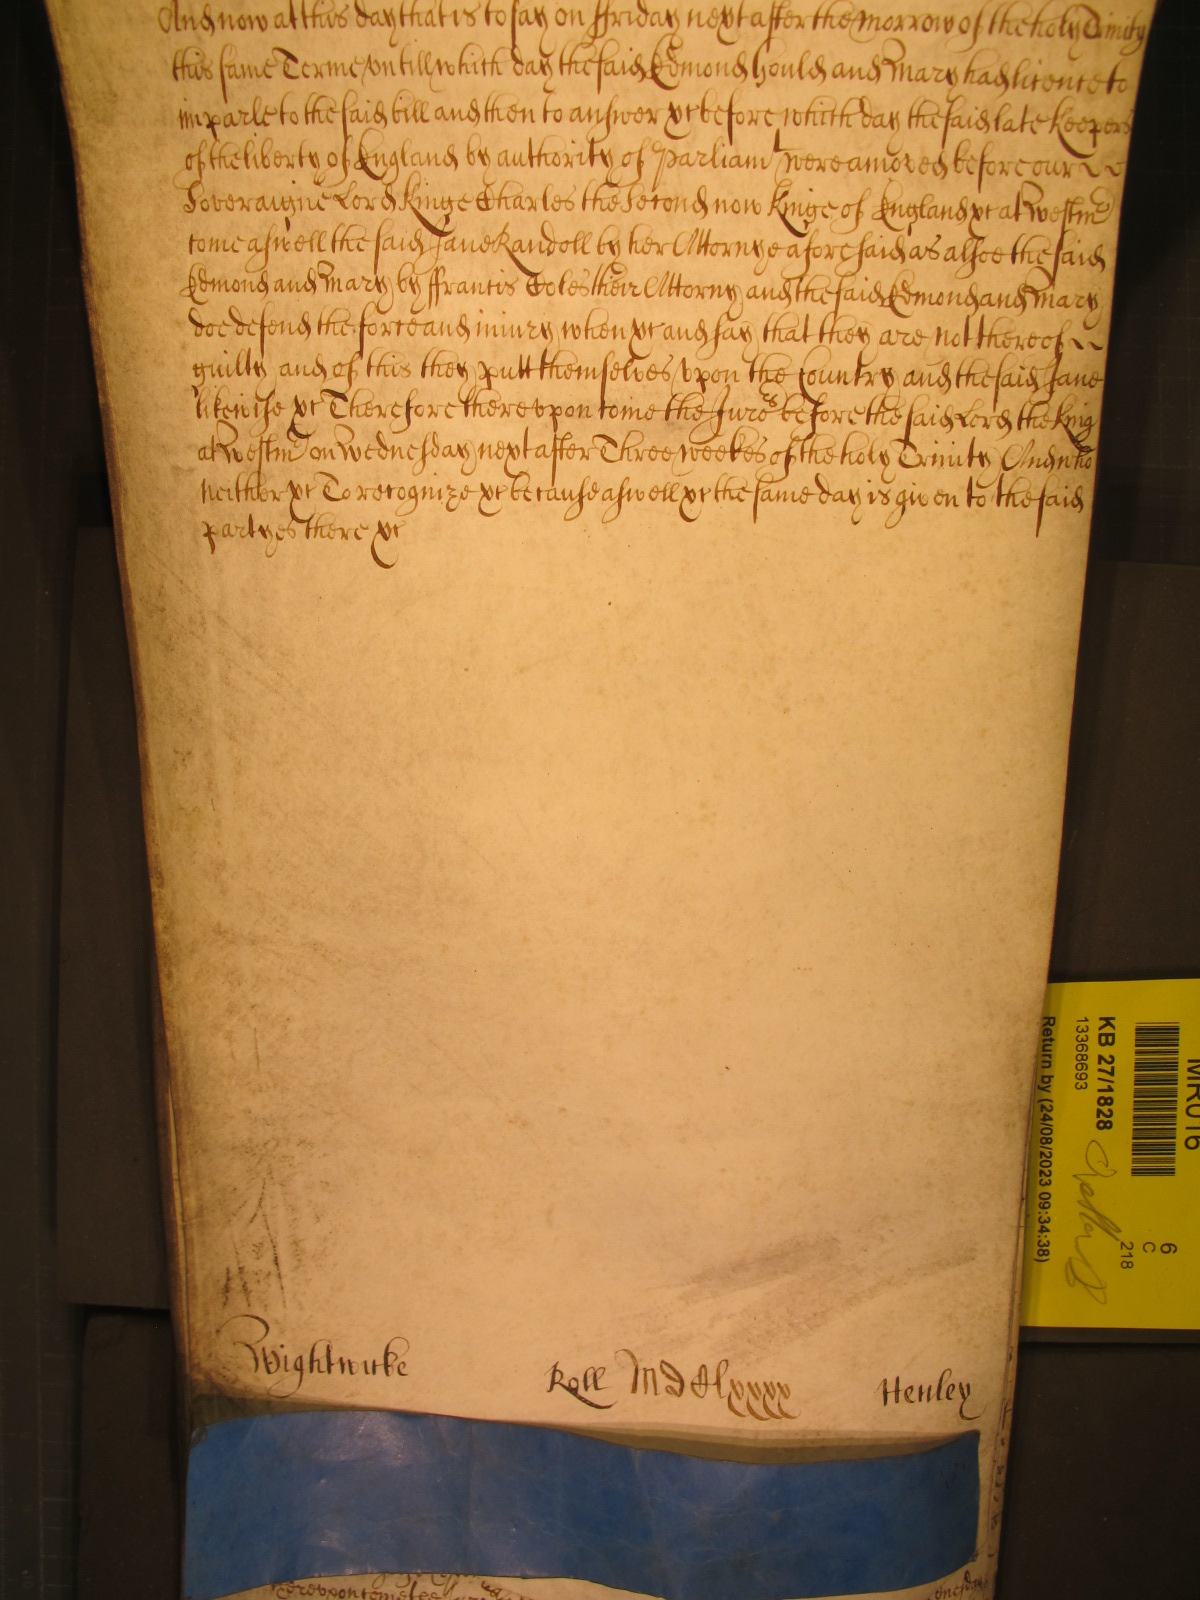 And now at this day that is to say on ffriday next after the morrow of the holy Trinity
this same Terme untill which day the said Edmond Hould and Mary had licence to
imparle to the said bill and then to answer &c before which day the said late Keepers
of the liberty of England by authority of Parliamt were amoved before our
Soveraigne Lord Kinge Charles the Second now Kinge of England &c at Westmr
come aswell the said Jane Randoll by her Attornye aforesaid as alsoe the said
Edmond and Mary by ffrancis Coles their Attorny and the said Edmond and Mary
doe defend the force and iniury when &c and say that they are not thereof
guilty and of this they putt themselves upon the Country and the said Jane
likewise &c Therefore thereupon come the Jurors before the said Lord the King
at Westmr on Wednesday next after Three weekes of the holy Trinity And who
neither &c To recognize &c because aswell &c the same day is given to the said
partyes there &c
Wightwicke
Roll MDClxxxx
Henley
MR016
6
C
218
KB 27/1828
13368693
Return by (24/08/2023 09:34:38)